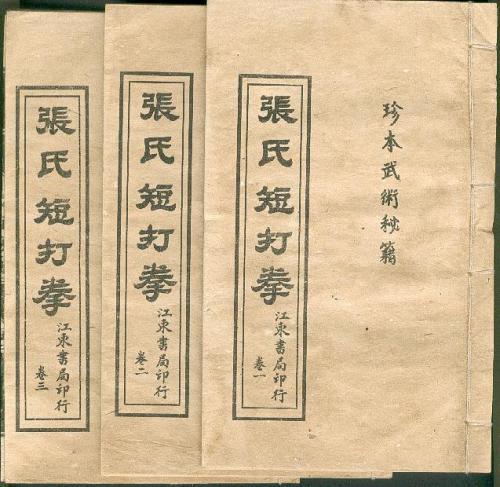 珍本武術秘籍
張氏短打拳
江東書局印行
卷一
張氏短打拳
江東書局印行
卷二
張氏短打拳
江東書局印行
卷三